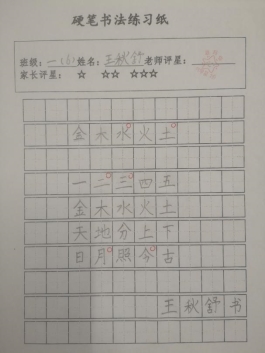 硬笔书法练习纸
班级：一（6）姓名：王秋舒 老师评星：
家长评星： ☆ ☆☆ ☆☆☆
金木水火土
一二三四五
金木水火土
天地分上下
日月照今古
王秋舒书